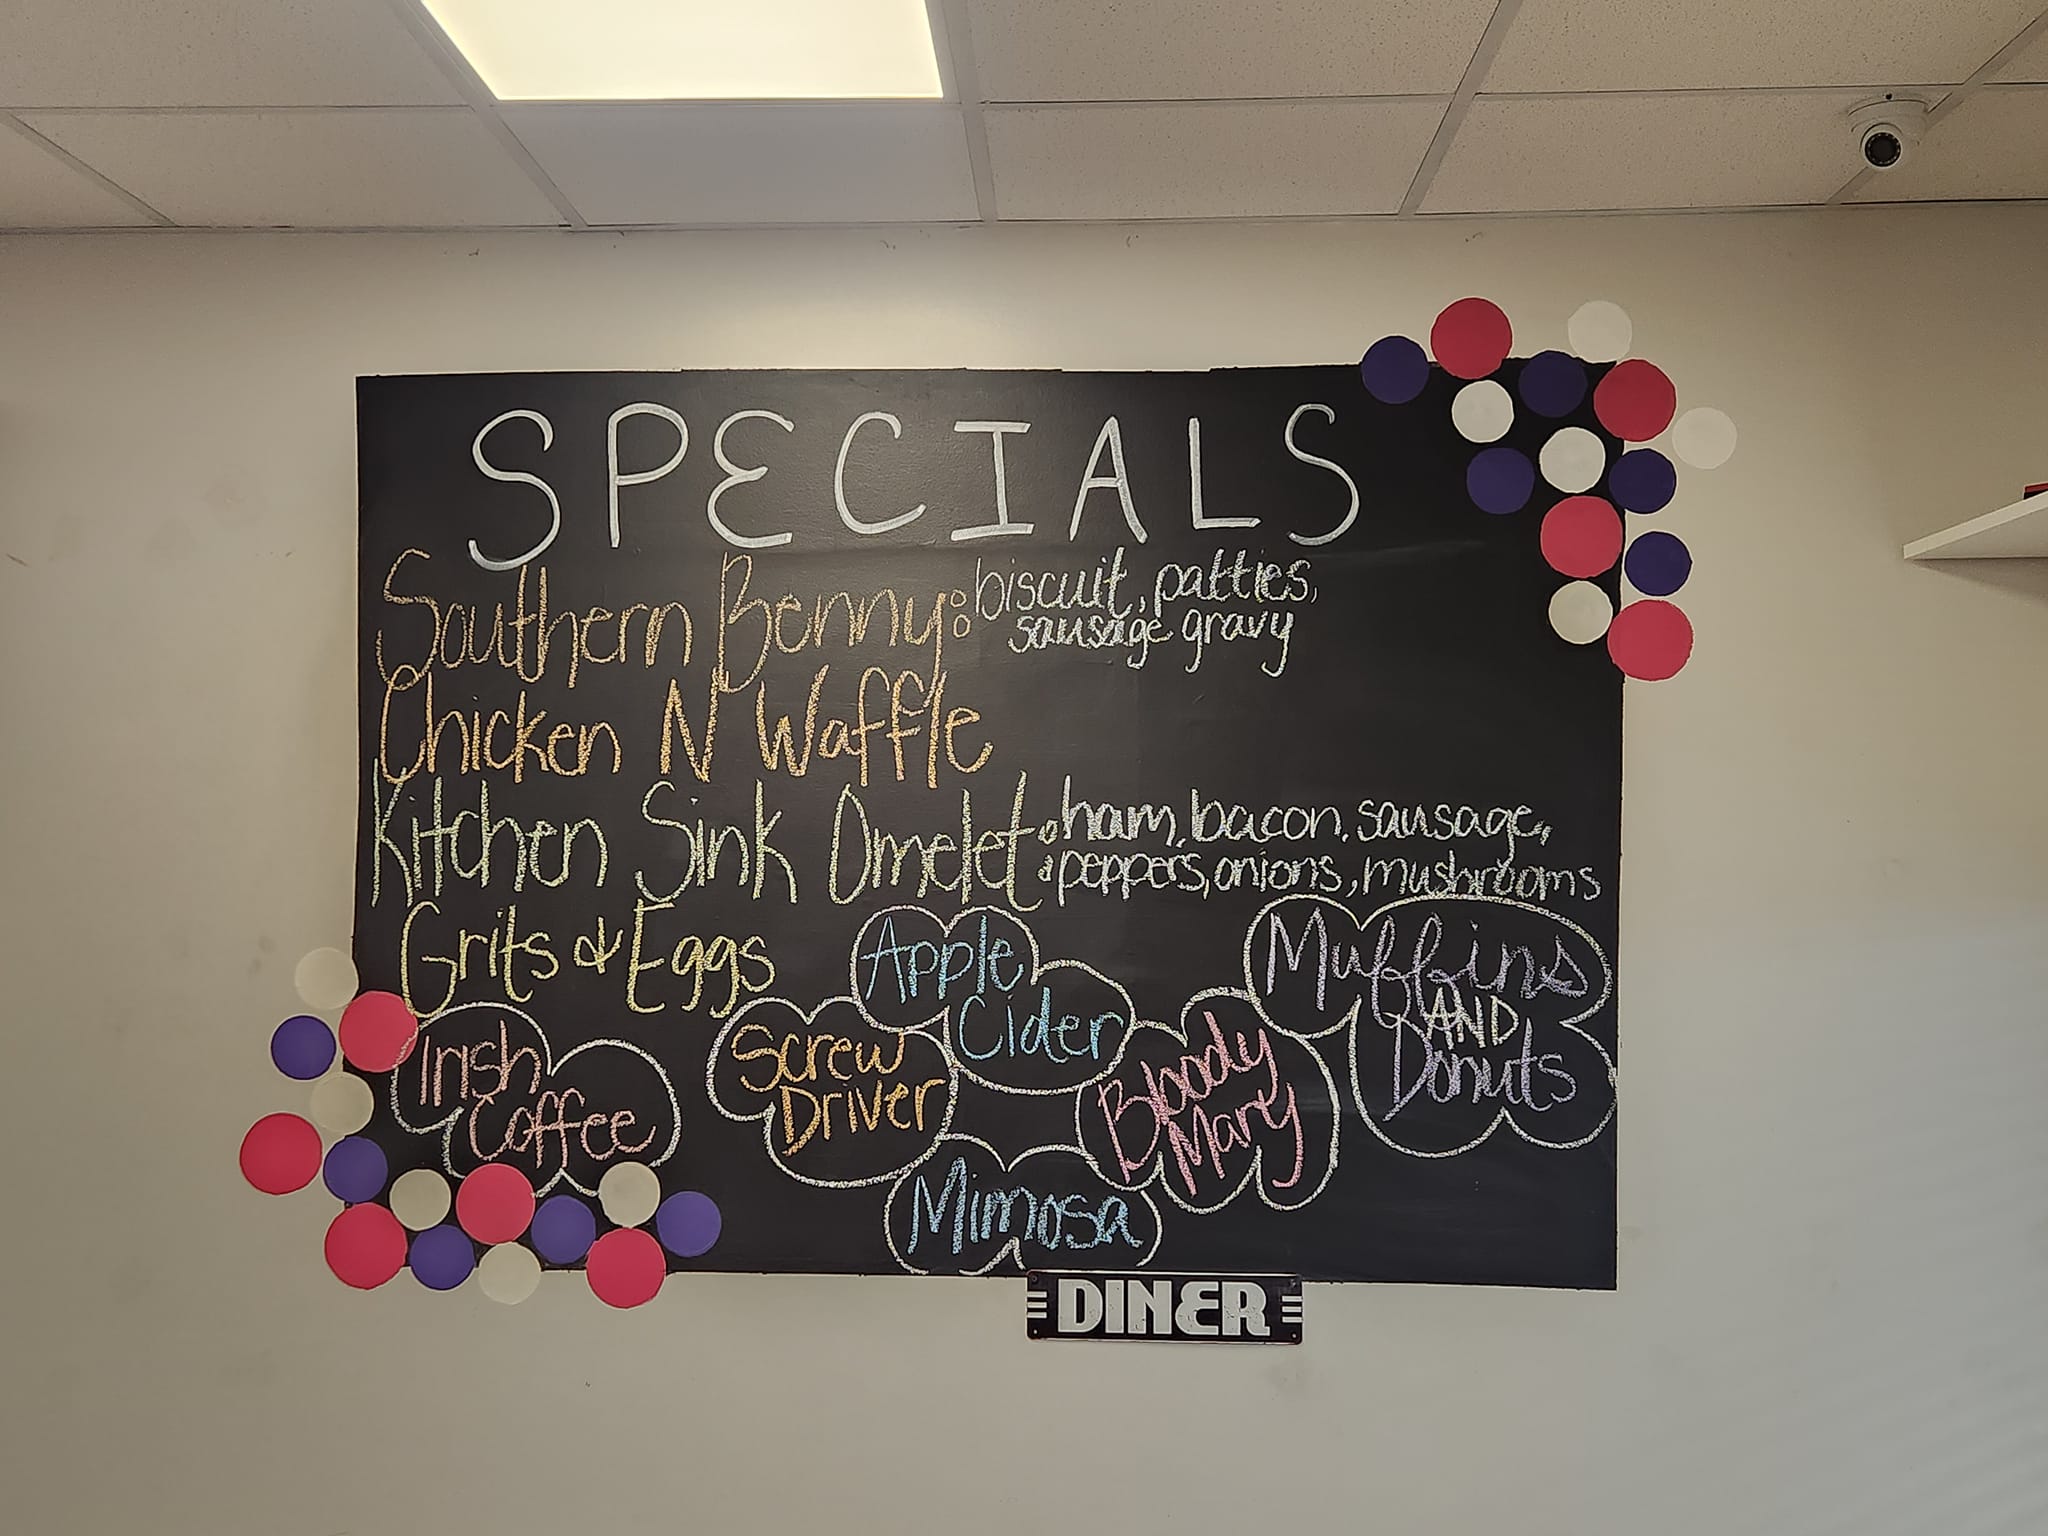 SPECIALS
Southern Benny: biscuit, patties,
sausage gravy
Chicken N Waffle
Kitchen Sink Omelet: ham, bacon, sausage,
peppers, onions, mushrooms
Grits & Eggs
Apple
Cider
Muffins
AND
Donuts
Irish
Coffee
Screw
Driver
Bloody
Mary
Mimosa
DINER